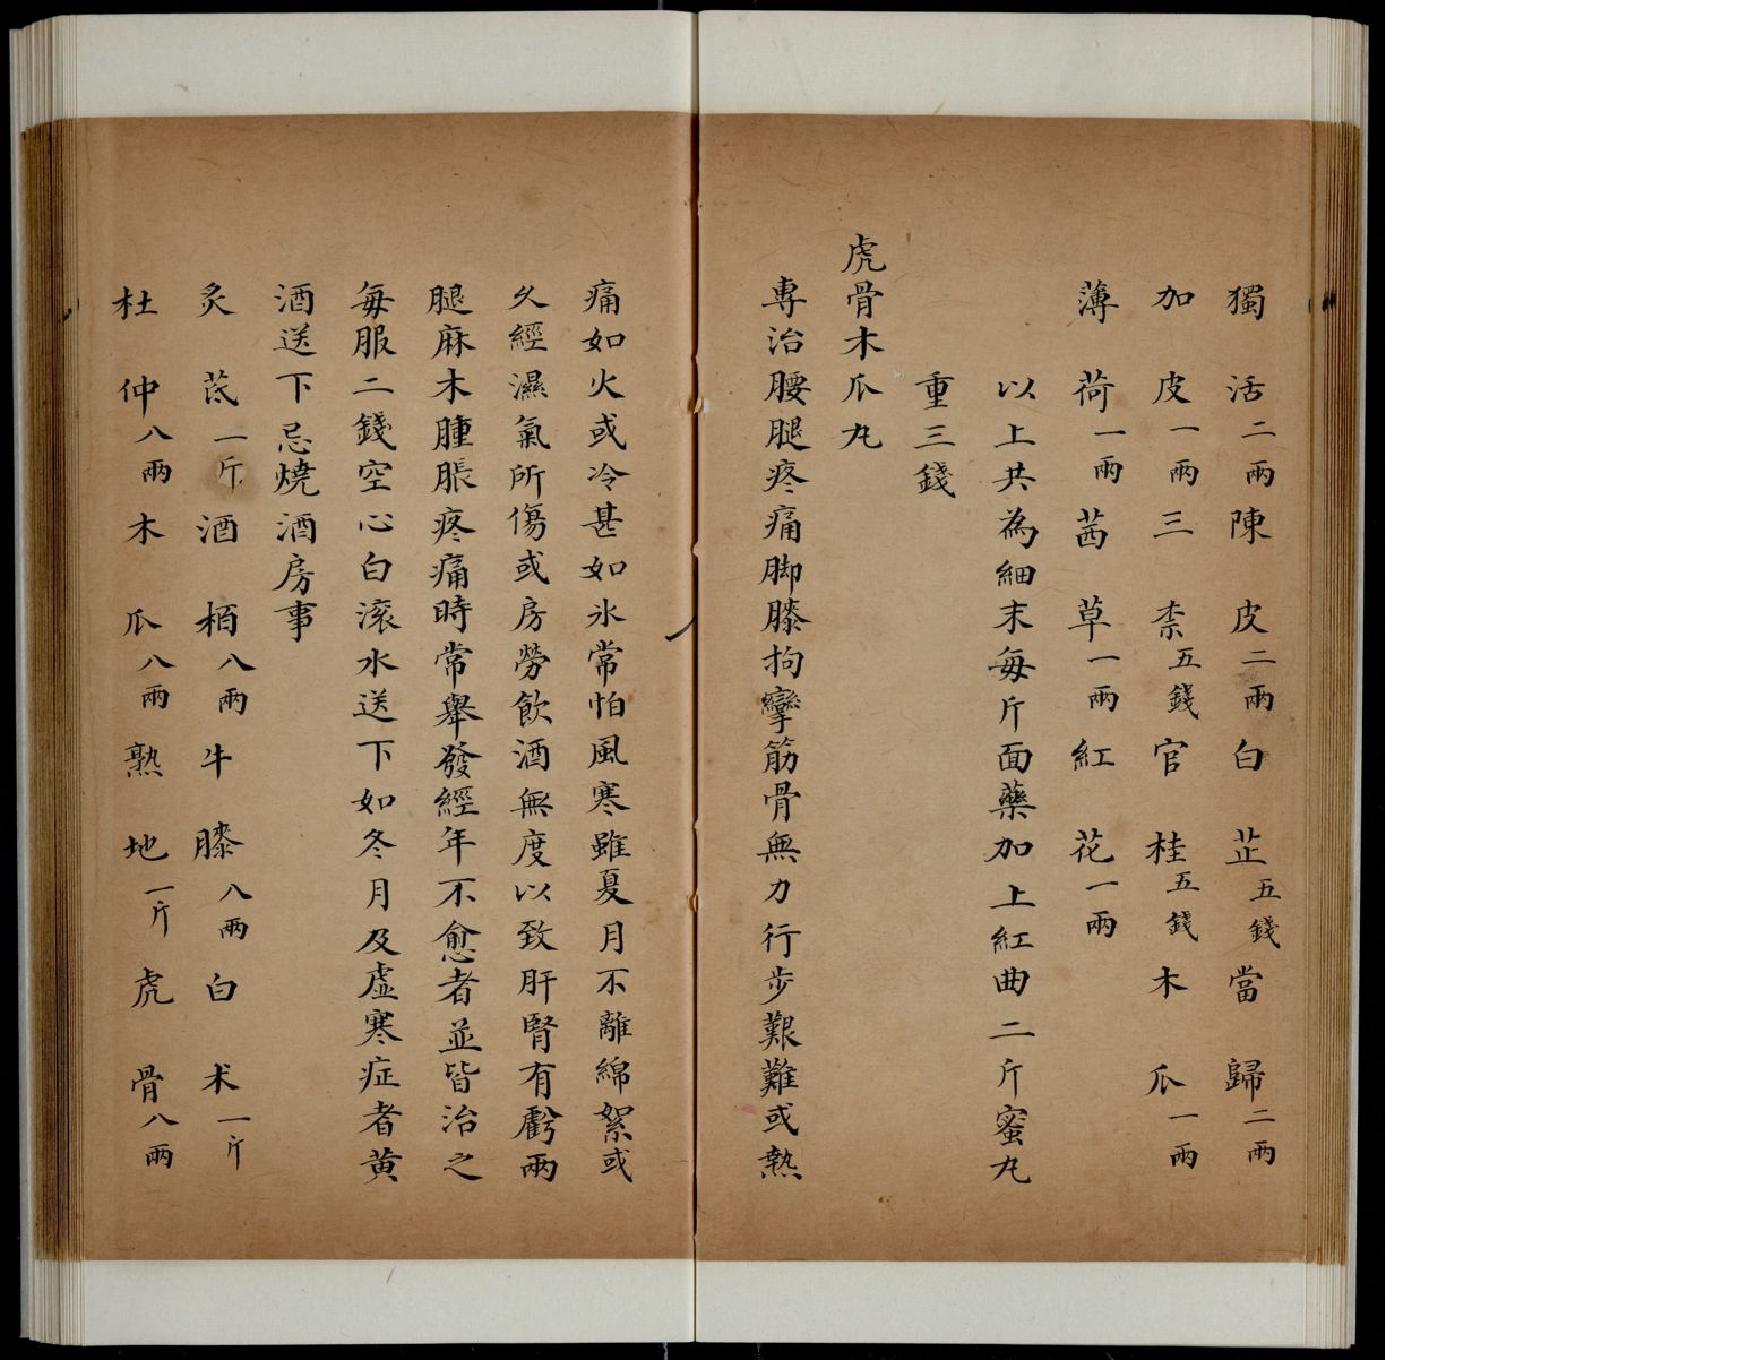 獨活二兩陳皮二兩白芷五錢當歸二兩
加皮一兩三柰五錢官桂五錢木瓜一兩
薄荷一兩茜草一兩紅花一兩
以上共為細末每斤面藥加上紅曲二斤蜜丸
重三錢
虎骨木瓜丸
專治腰腿疼痛脚膝拘攣筋骨無力行步艱難或熱
痛如火或冷甚如氷常怕風寒雖夏月不離綿絮或
久經濕氣所傷或房勞飲酒無度以致肝腎有虧兩
腿麻木腫脹疼痛時常舉發經年不愈者並皆治之
每服二錢空心白滚水送下如冬月及虛寒症者黄
酒送下忌燒酒房事
炙芪一斤酒栢八兩牛膝八兩白术一斤
杜仲八兩木瓜八兩熟地一斤虎骨八兩